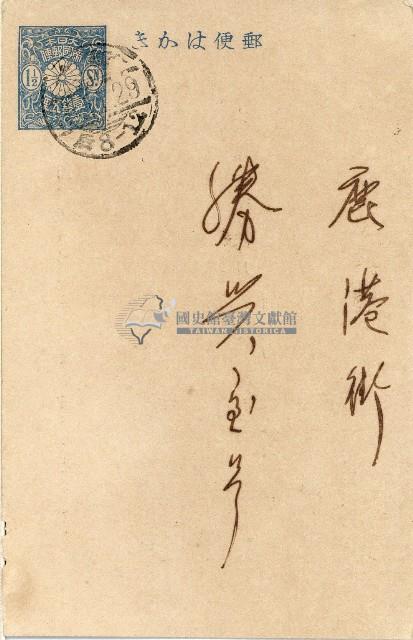 郵便はかき
大日本
帝國郵便
1½ Sⁿ
29
8-12
鹿港街
勝興宝号
國史館臺灣文獻館
TAIWAN HISTORICA